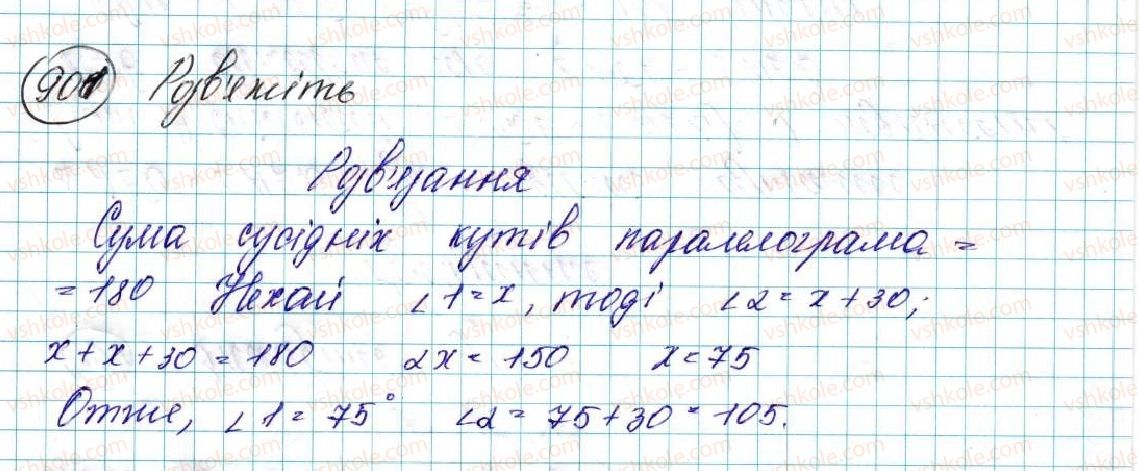 901 Розв'яжіть
Розв'язання
Сума сусідніх кутів паралелограма =
= 180 Нехай ∠1 = x, тоді ∠2 = x + 30;
x + x + 30 = 180 2x = 150 x = 75
Отже, ∠1 = 75° ∠2 = 75 + 30 = 105.